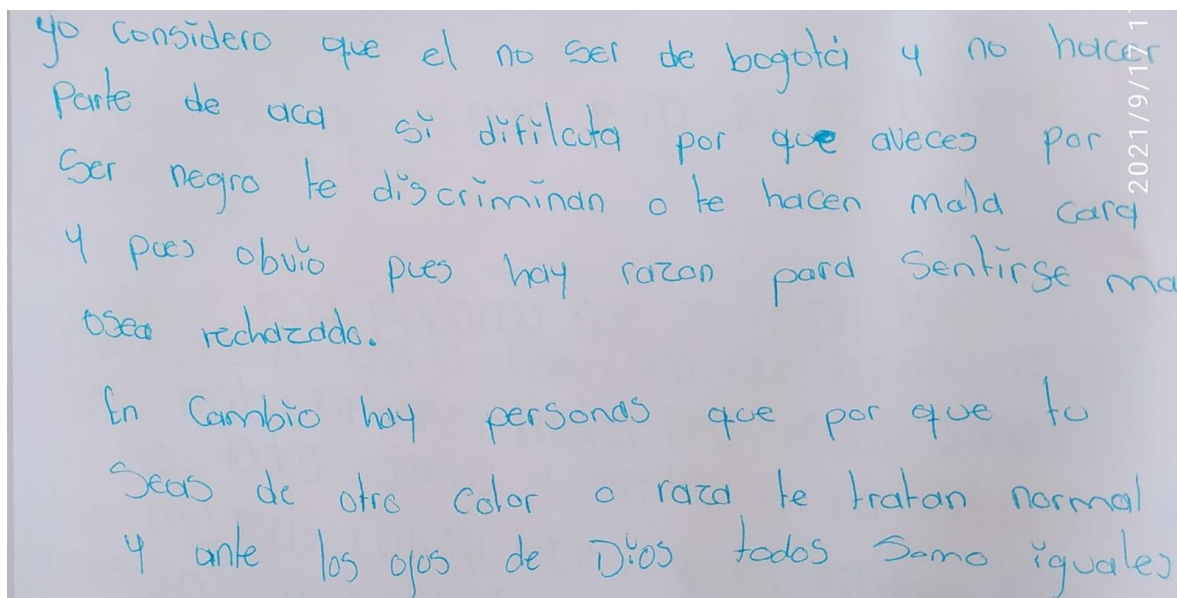 yo considero que el no ser de bogotá y no hacer
Parte de aca si difilcuta por que aveces por
Ser negro te discriminan o te hacen mala cara
y pues obvio pues hay razon para Sentirse ma
osea rechazado.
En Cambio hay personas que por que tu
Seas de otro color o raza te tratan normal
y ante los ojos de Dios todos Somo iguales
2021/9/17 1